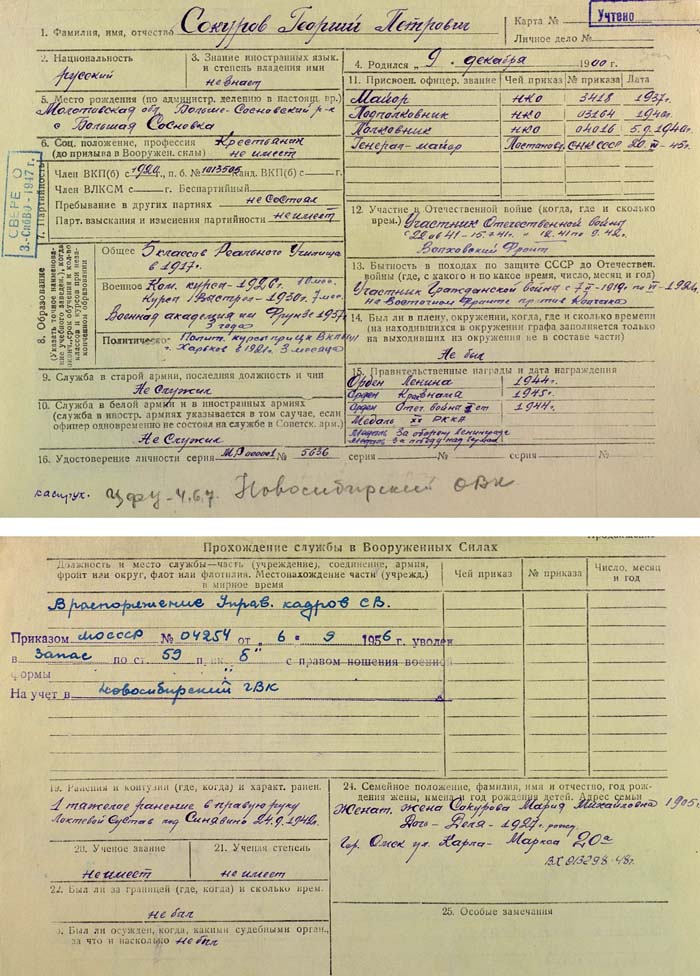 Учтено
Карта №
1. Фамилия, имя, отчество Сокуров Георгий Петрович
Личное дело №
2. Национальность
русский
3. Знание иностранных язык.
и степень владения ими
не знает
4. Родился „ 9 . декабря 1900 г.
5. Место рождения (по администр. делению в настоящ. вр.)
Молотовская обл. Больше-Сосновский р-н
с Большая Сосновка
6. Соц. положение, профессия Крестьянин
(до призыва в Вооружен. силы) не имеет
7. Партийность
Член ВКП(б) с 192 г., п. б. № канд. ВКП(б) с г.
Член ВЛКСМ с г. Беспартийный
Пребывание в других партиях не состоял
Парт. взыскания и изменения партийности не имеет
8. Образование
(Указать точное наименова-
Общее 5 классов Реального Училища
в 1917г.
Военное Ком. курсы - 1926г. 10 мес.
Курсы "Выстрел" - 1930г. 7 мес.
Военная академия им Фрунзе 1937г.
3 года
Политическое Полит. курсы при ЦК ВКП(б)
г. Харьков в 1921г. 3 месяца
9. Служба в старой армии, последняя должность и чин
Не Служил
10. Служба в белой армии и в иностранных армиях
(служба в иностр. армиях указывается в том случае, если
офицер одновременно не состоял на службе в Советск. арм.)
Не Служил
11. Присвоен. офицер. звание Чей приказ № приказа Дата
Майор НКО 3418 1937г.
Подполковник НКО 03164 1940г.
Полковник НКО 04016 5.9.1940г.
Генерал-майор Постановл. СНК СССР 20. -45г.
12. Участие в Отечественной войне (когда, где и сколько
врем.) Участник Отечественной войны
Волховский Фронт
13. Бытность в походах по защите СССР до Отечествен.
войны (где, с какого и по какое время, число, месяц и год)
Участник Гражданской войны с 7 -1919г. по
на Восточном Фронте против Колчака
14. Был ли в плену, окружении, когда, где и сколько времени
(на находившихся в окружении графа заполняется только
на выходивших из окружения не в составе части)
Не был
15. Правительственные награды и дата награждения
Орден Ленина 1944г.
Орден Кр. знамя 1945г.
Орден Отеч. война ст 1944г.
Медаль XX РККА
Медаль За оборону Ленинграда
Медаль За победу над Герман
16. Удостоверение личности серия № 5636 серия № серия №
ЦФУ-4.6.7. Новосибирский ОВК
Прохождение службы в Вооруженных Силах
Должность и место службы—часть (учреждение), соединение, армия,
фронт или округ, флот или флотилия. Местонахождение части (учрежд.)
в мирное время
Чей приказ № приказа Число, месяц
и год
В распоряжение Управ. кадров СВ.
Приказом МОССР № 04254 от „ 6 „ 9 1956 г. уволен
в запас по ст. 59 п. „б" с правом ношения военной
формы
На учет в Новосибирский ГВК
19. Ранения и контузии (где, когда) и характ. ранен.
1 тяжелое ранение в правую руку
Локтевой Сустав под Синявино 24.9.1942г.
20. Ученое звание
не имеет
21. Ученая степень
не имеет
22. Был ли за границей (где, когда) и сколько врем.
не был
Был ли осужден, когда, какими судебными орган.,
за что и насколько не был
24. Семейное положение, фамилия, имя и отчество, год рож-
дения жены, имена и год рождения детей. Адрес семьи
Женат. Жена Сакурова Мария Михайловна 1905г
Дочь- Неля - 1927г. рожд
Гор. Омск ул. Карла-Маркса 20а
25. Особые замечания